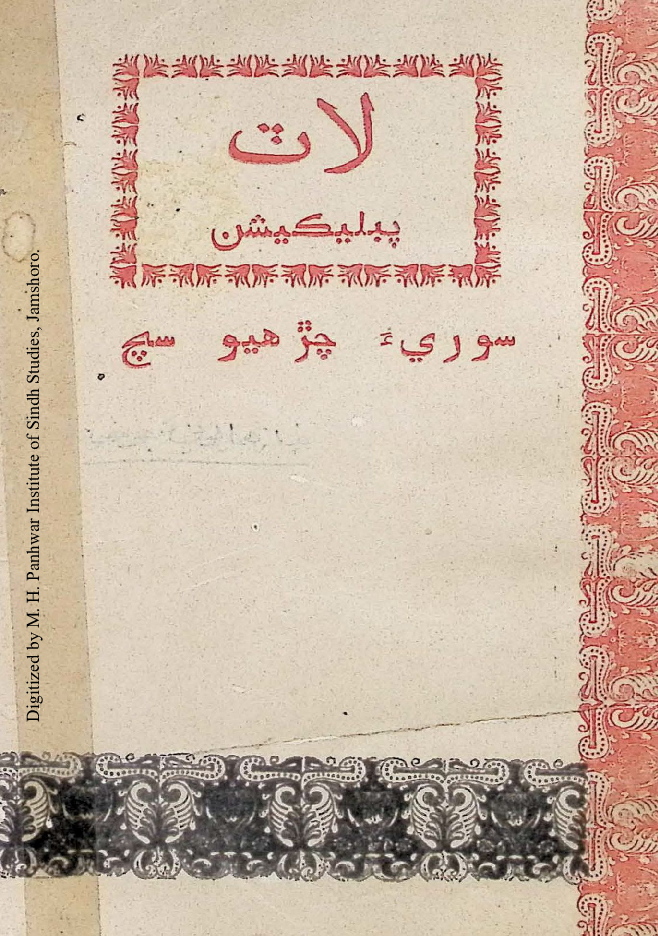 لات
پبليڪيشن
سوريءَ چڙهيو سچ
Digitized by M. H. Panhwar Institute of Sindh Studies, Jamshoro.